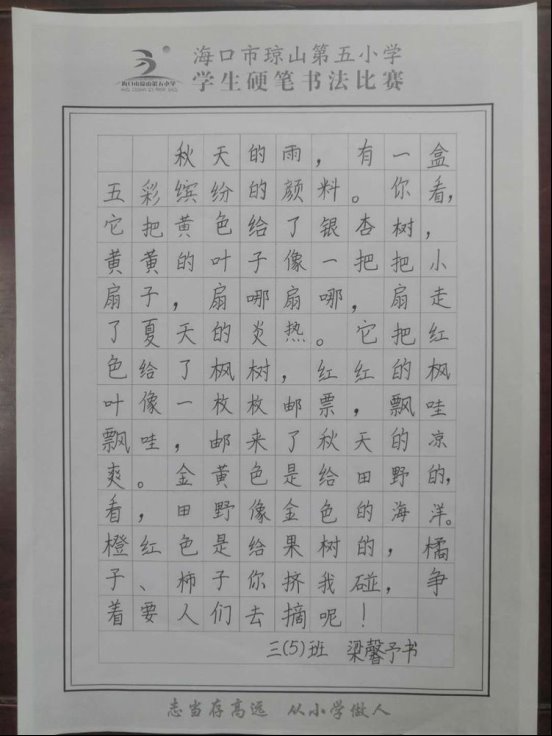 海口市琼山第五小学
学生硬笔书法比赛
海口市琼山第五小学
秋天的雨，有一盒
五彩缤纷的颜料。你看，
它把黄色给了银杏树，
黄黄的叶子像一把把小
扇子，扇哪扇哪，扇走
了夏天的炎热。它把红
色给了枫树，红红的枫
叶像一枚枚邮票，飘哇
飘哇，邮来了秋天的凉
爽。金黄色是给田野的，
看，田野像金色的海洋。
橙红色是给果树的，橘
子、柿子你挤我碰，争
着要人们去摘呢！
三(5)班 梁馨予书
志当存高远 从小学做人